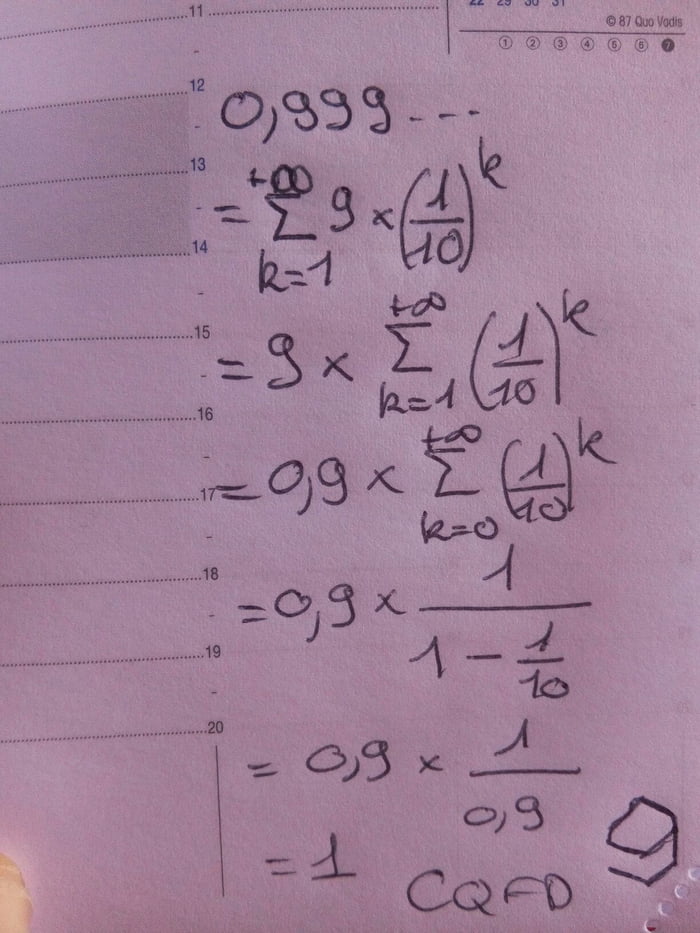 22 29 30 31
11
© 87 Quo Vadis
① ② ③ ④ ⑤ ⑥ ❼
12
0,999 ---
13
= +∞ Σ k=1 9 × (1/10)^k
14
15
= 9 × +∞ Σ k=1 (1/10)^k
16
17
= 0,9 × +∞ Σ k=0 (1/10)^k
18
= 0,9 × 1/(1 - 1/10)
19
20
= 0,9 × 1/0,9
= 1 CQFD
9